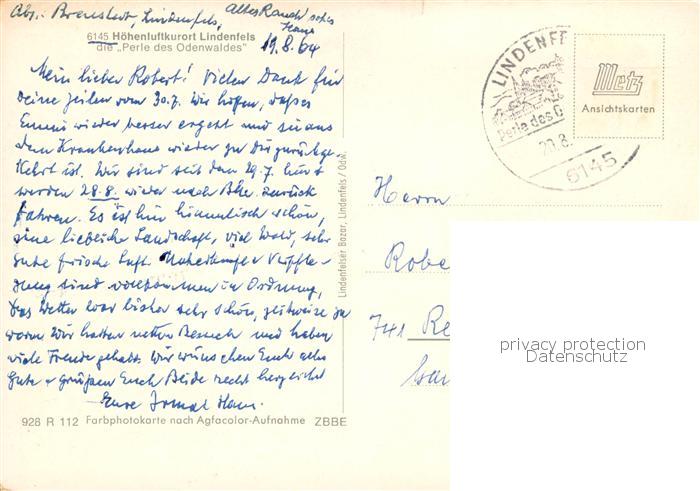 Abs.: Brenstedt, Lindenfels, Altes Rauch'sches Haus
6145 Höhenluftkurort Lindenfels
die „Perle des Odenwaldes"
19.8.64
Mein lieber Robert! Vielen Dank für
Deine Zeilen vom 30.7. Wir hoffen, daß es
Emmi wieder besser ergeht und sie aus
dem Krankenhaus wieder zu Dir zurückge-
kehrt ist. Wir sind seit dem 29.7. hier u
werden 28.8. wieder nach Bhv. zurück
fahren. Es ist hier himmlisch schön,
eine liebliche Landschaft, viel Wald, sehr
gute frische Luft. Unterkunft + Verpfle-
gung sind vollkommen in Ordnung,
das Wetter war bisher sehr schön, zeitweise zu
warm. Wir hatten netten Besuch und haben
viel Freude gehabt. Wir wünschen Euch alles
Gute + grüßen Euch Beide recht herzlichst
Eure Irma + Hans.
928 R 112 Farbphotokarte nach Agfacolor-Aufnahme ZBBE
Lindenfelser Bazar, Lindenfels / Odw.
LINDENFE
Perle des O
20.8.
6145
Metz
Ansichtskarten
Herrn
Robe
741 Re
privacy protection
Datenschutz